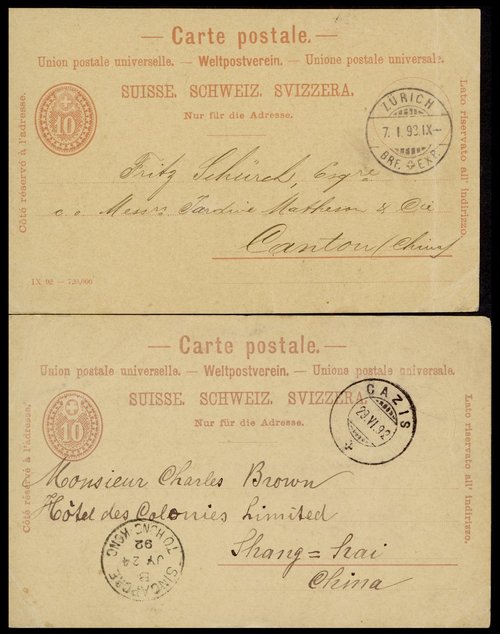 — Carte postale. —
Union postale universelle. — Weltpostverein. — Unione postale universale.
SUISSE. SCHWEIZ. SVIZZERA.
Nur für die Adresse.
10
Côté réservé à l'adresse.
Lato riservato all' indirizzo.
ZÜRICH
7. I. 93. IX–
BRF. EXP.
Fritz Schürch, Esqre
c. o Messrs Jardine Matheson & Cie
Canton (China)
IX 92 — 720,000
— Carte postale. —
Union postale universelle. — Weltpostverein. — Unione postale universale.
SUISSE. SCHWEIZ. SVIZZERA.
Nur für die Adresse.
10
Côté réservé à l'adresse.
Lato riservato all' indirizzo.
CAZIS
29. VI. 92
Monsieur Charles Brown
Hôtel des Colonies Limited
Shang=hai
China
SINGAPORE TO HONG KONG
B
JY 24
92